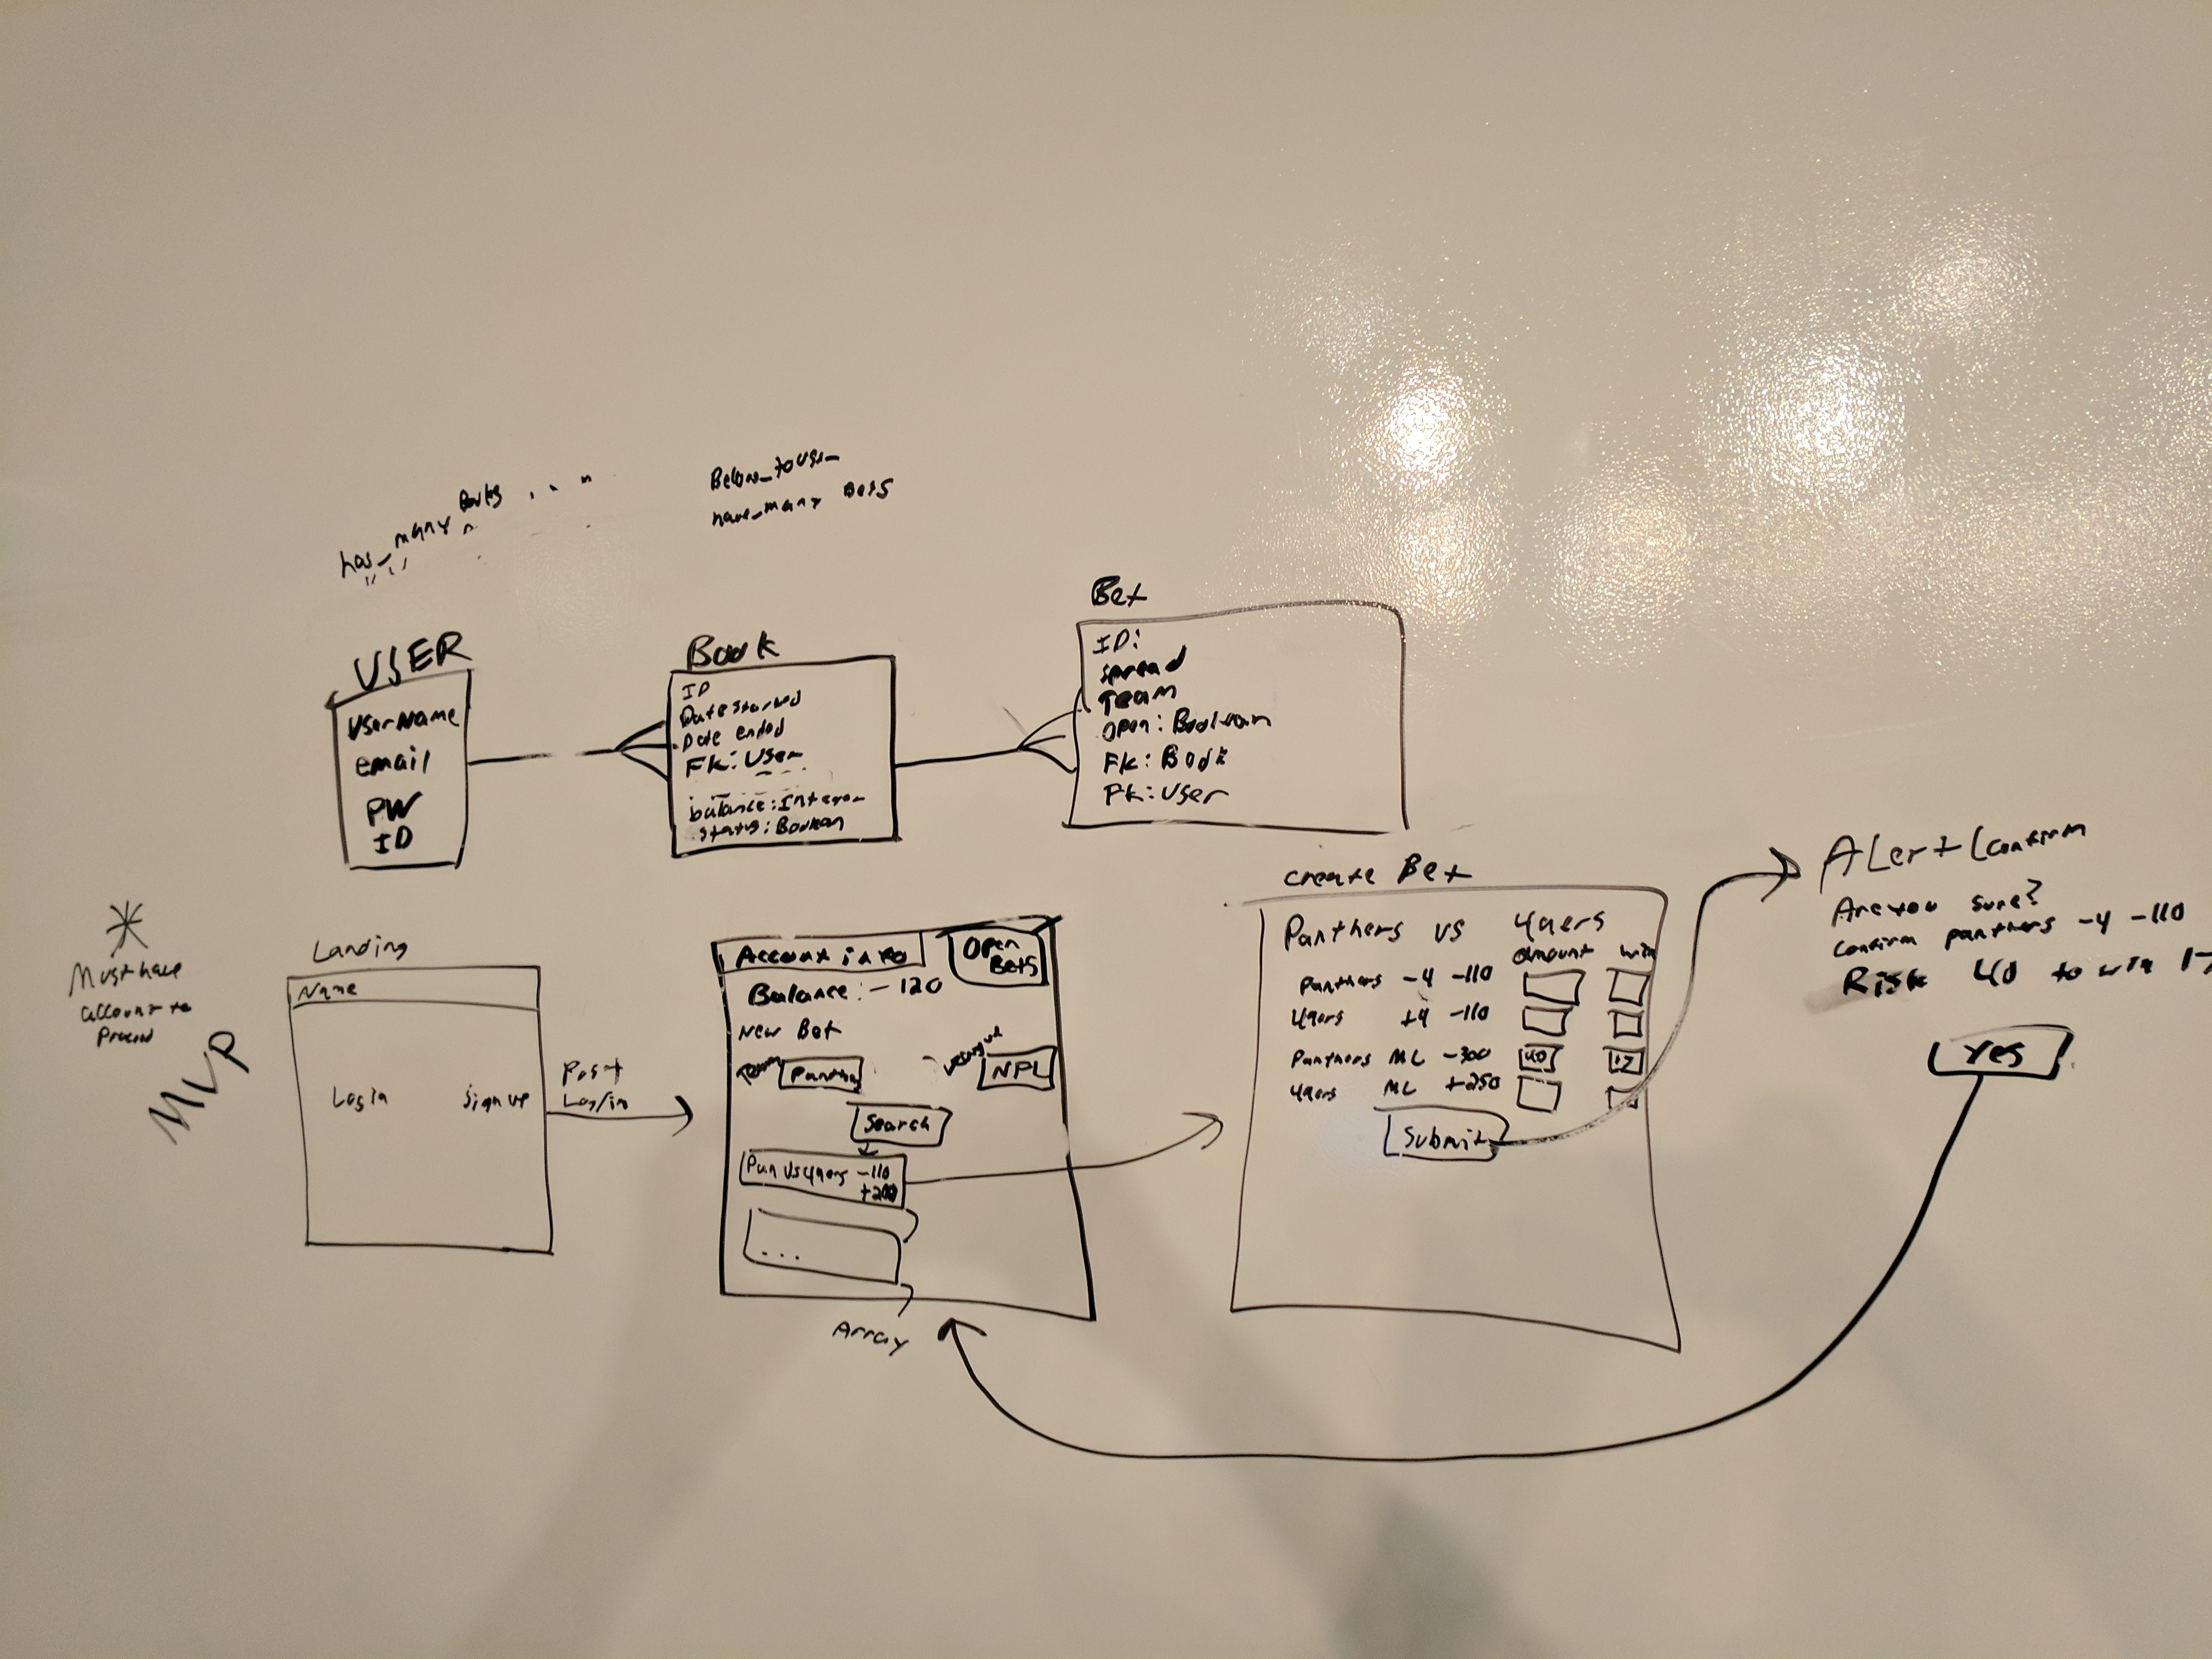 has_many Books
have_many Bets
USER
UserName
email
PW
ID
Book
ID
Date started
Date ended
FK: User
balance: Integer
status: Boolean
Bet
ID:
spread
Team
Open: Boolean
FK: Book
FK: User
Must have
account to
Proceed
MVP
Landing
Name
Login signup
Post
Log/in
Account info
Open
Bets
Balance: -120
New Bet
Team Panthers NFL
Search
Pan vs 49ers -110
+200
...
Array
create Bet
Panthers vs 49ers
amount win
Panthers -4 -110
49ers +4 -110
Panthers ML -300 40 17
49ers ML +250
Submit
Alert/confirm
Are you sure?
Confirm panthers -4 -110
Risk 40 to win 17
Yes